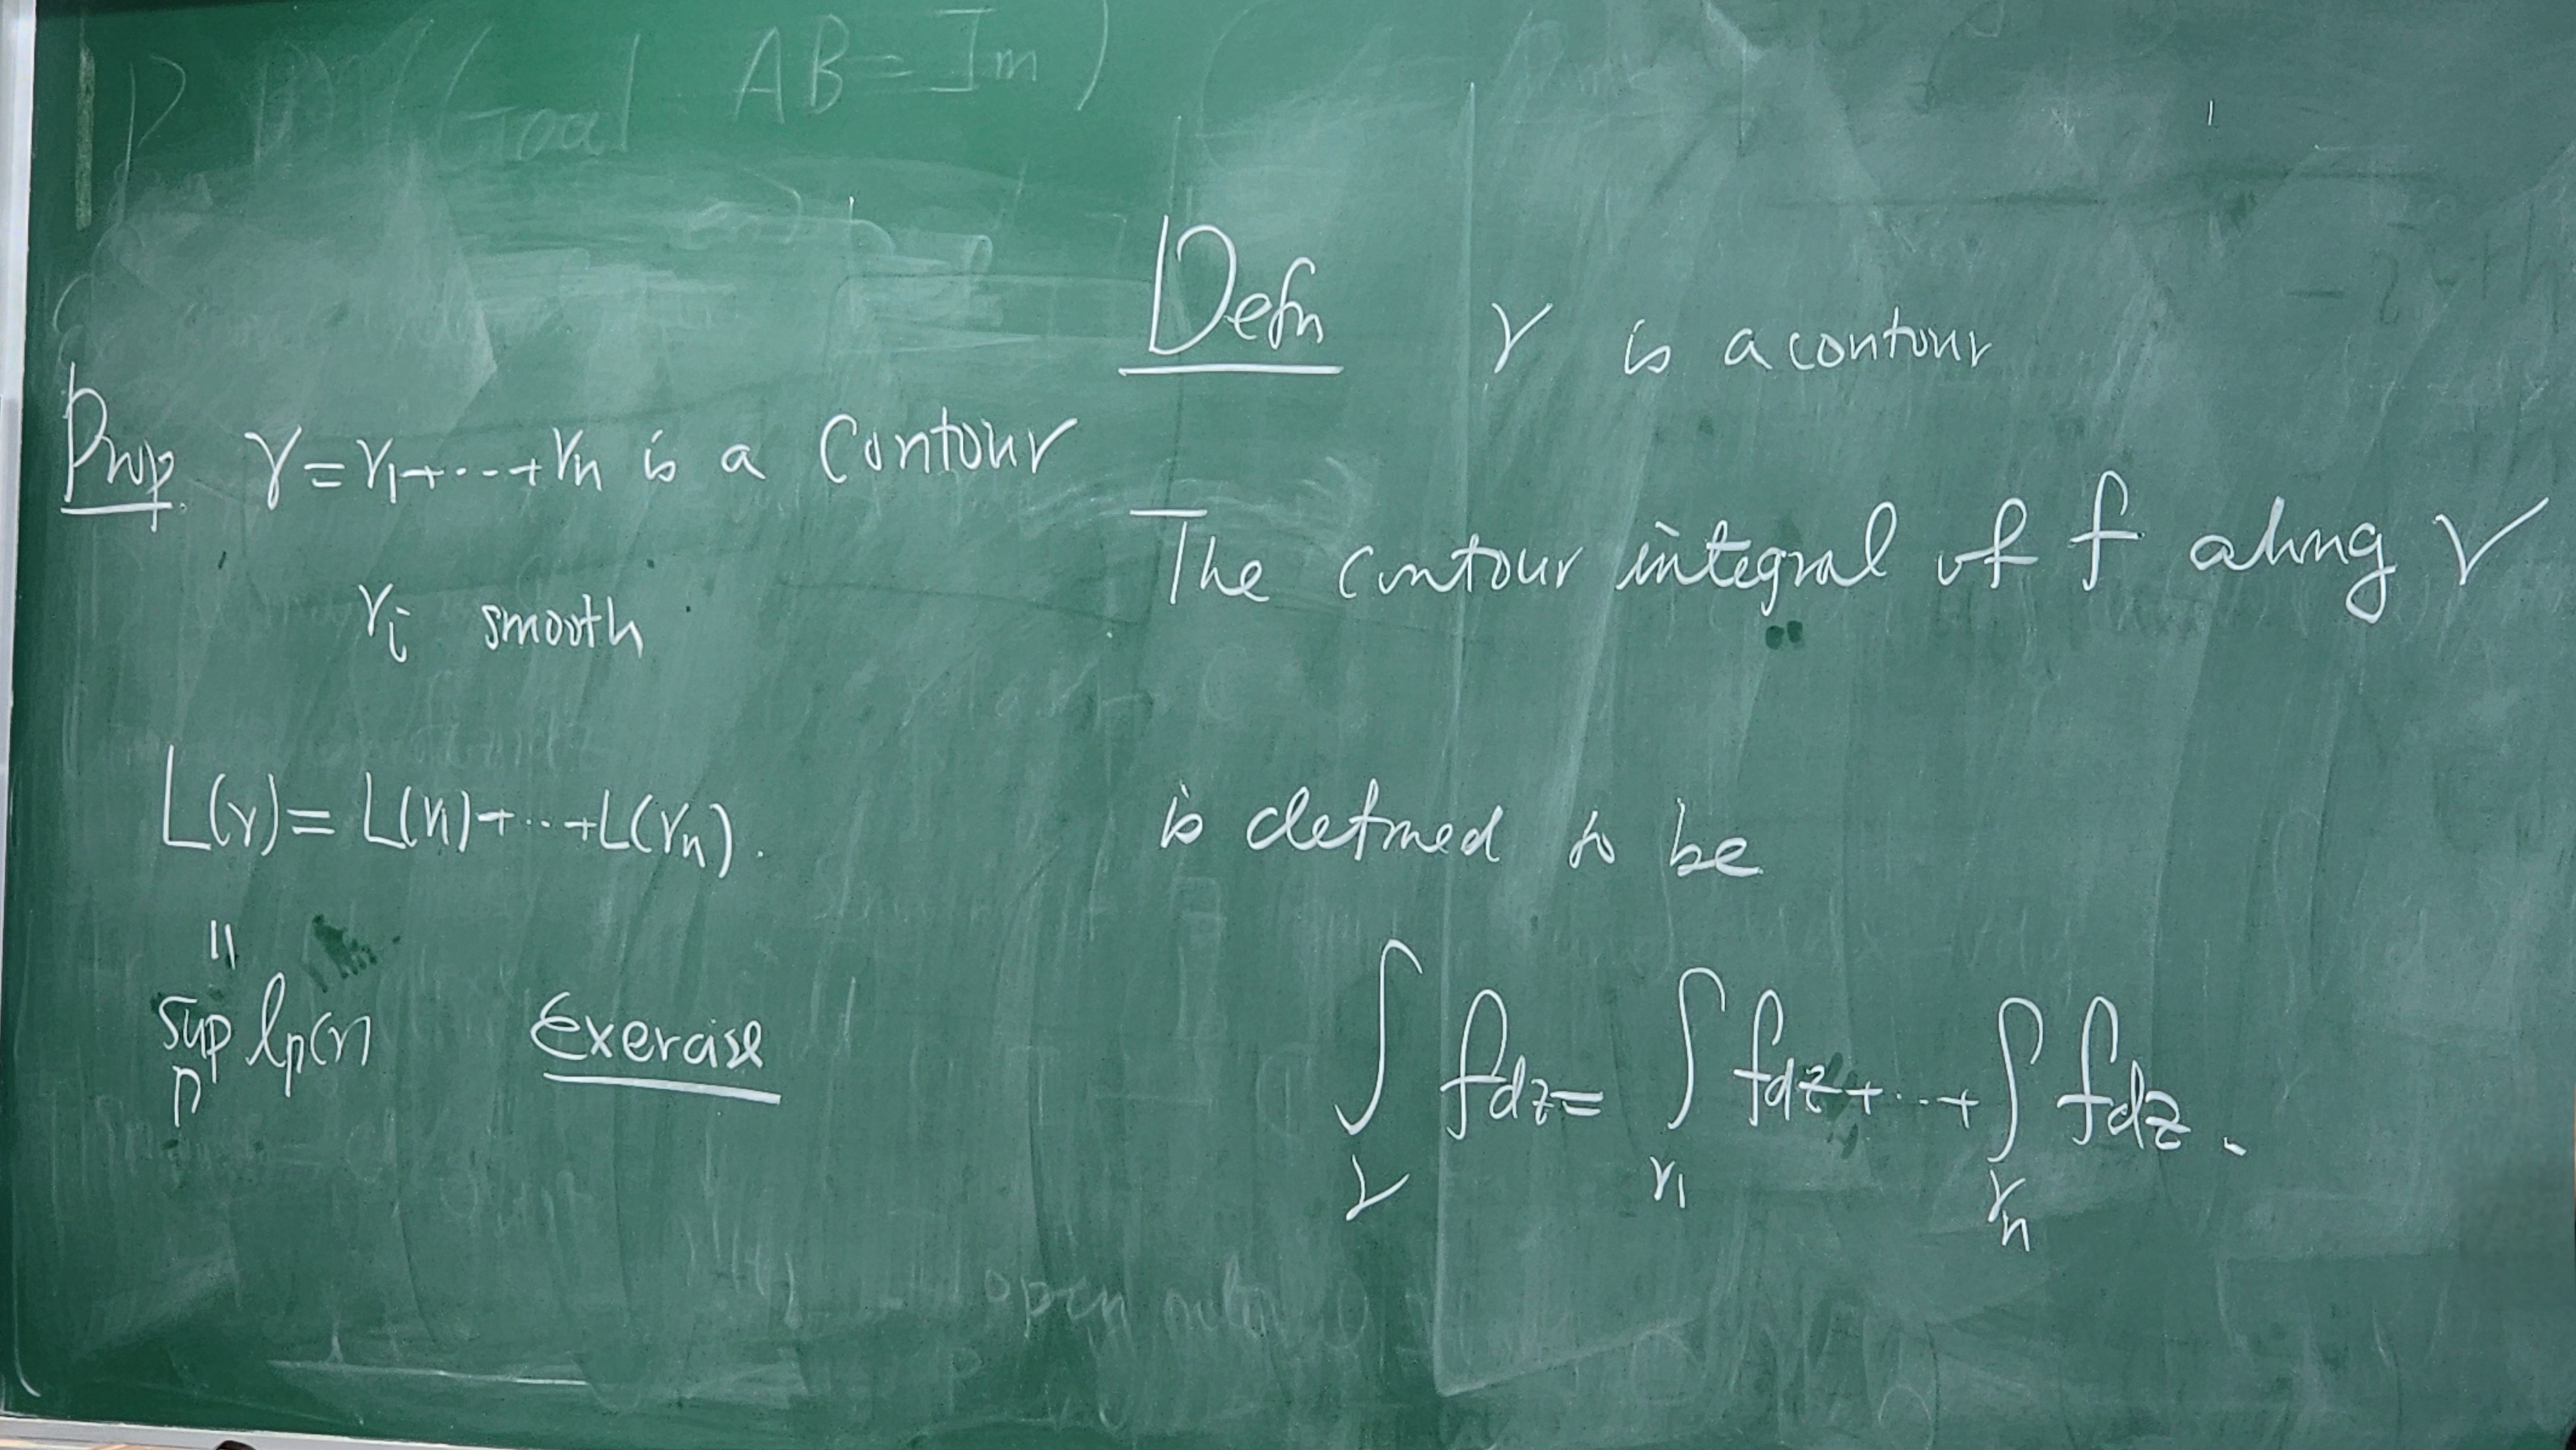 (Goal AB=Im)
Prop. γ=γ1+···+γn is a contour
γi smooth
L(γ)= L(γ1)+···+L(γn).
"
sup lp(γ)
P
Exercise
Defn γ is a contour
The contour integral of f along γ
is defined to be
∫ fdz= ∫ fdz+···+∫ fdz.
γ γ1 γn
open